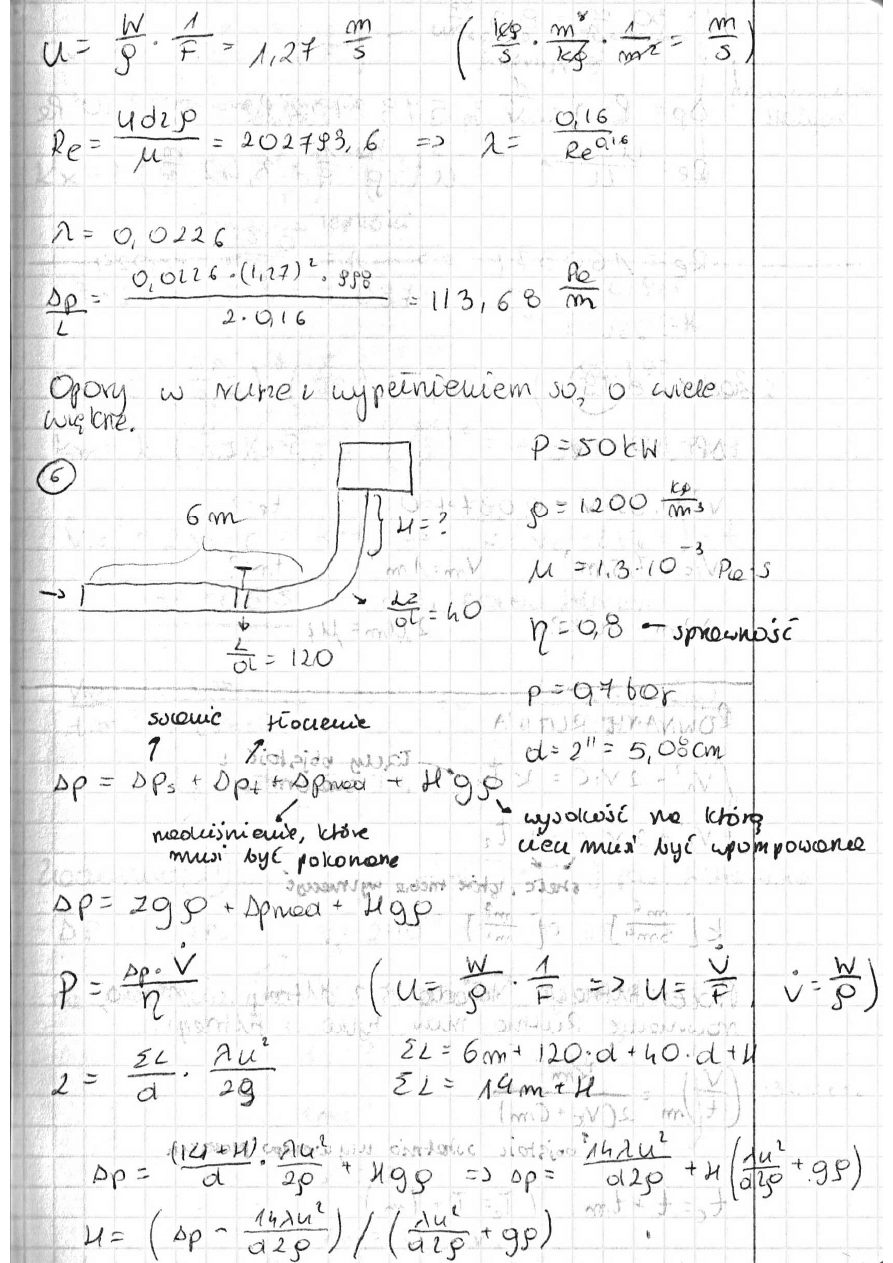 u = W/ρ · 1/F = 1,27 m/s ( kg/s · m³/kg · 1/m² = m/s )
Re = u dz ρ / μ = 202793,6 => λ = 0,16 / Re^0,16
λ = 0,0226
Δp/L = 0,0226·(1,27)²·998 / 2·0,16 = 113,68 Pa/m
Opory w rurze z wypełnieniem są o wiele
większe.
6
P = 50 kW
6 m
H = ?
ρ = 1200 kg/m³
μ = 1,3·10⁻³ Pa·s
→
Lz/d = 40
L/d = 120
η = 0,8 ← sprawność
p = 0,7 bar
d = 2" = 5,08 cm
ssanie tłoczenie
Δp = Δps + Δpt + Δpnad + Hgρ
nadciśnienie, które
musi być pokonane
wysokość na którą
ciecz musi być wpompowana
Δp = zgρ + Δpnad + Hgρ
P = Δp·V̇ / η ( u = W/ρ · 1/F => u = V̇/F, V̇ = W/ρ )
z = ΣL/d · λu²/2g
ΣL = 6m + 120·d + 40·d + H
ΣL = 14m + H
Δp = (14+H)/d · λu²/2ρ + Hgρ => Δp = 14λu²/d2ρ + H(λu²/d2ρ + gρ)
H = (Δp − 14λu²/d2ρ) / (λu²/d2ρ + gρ)